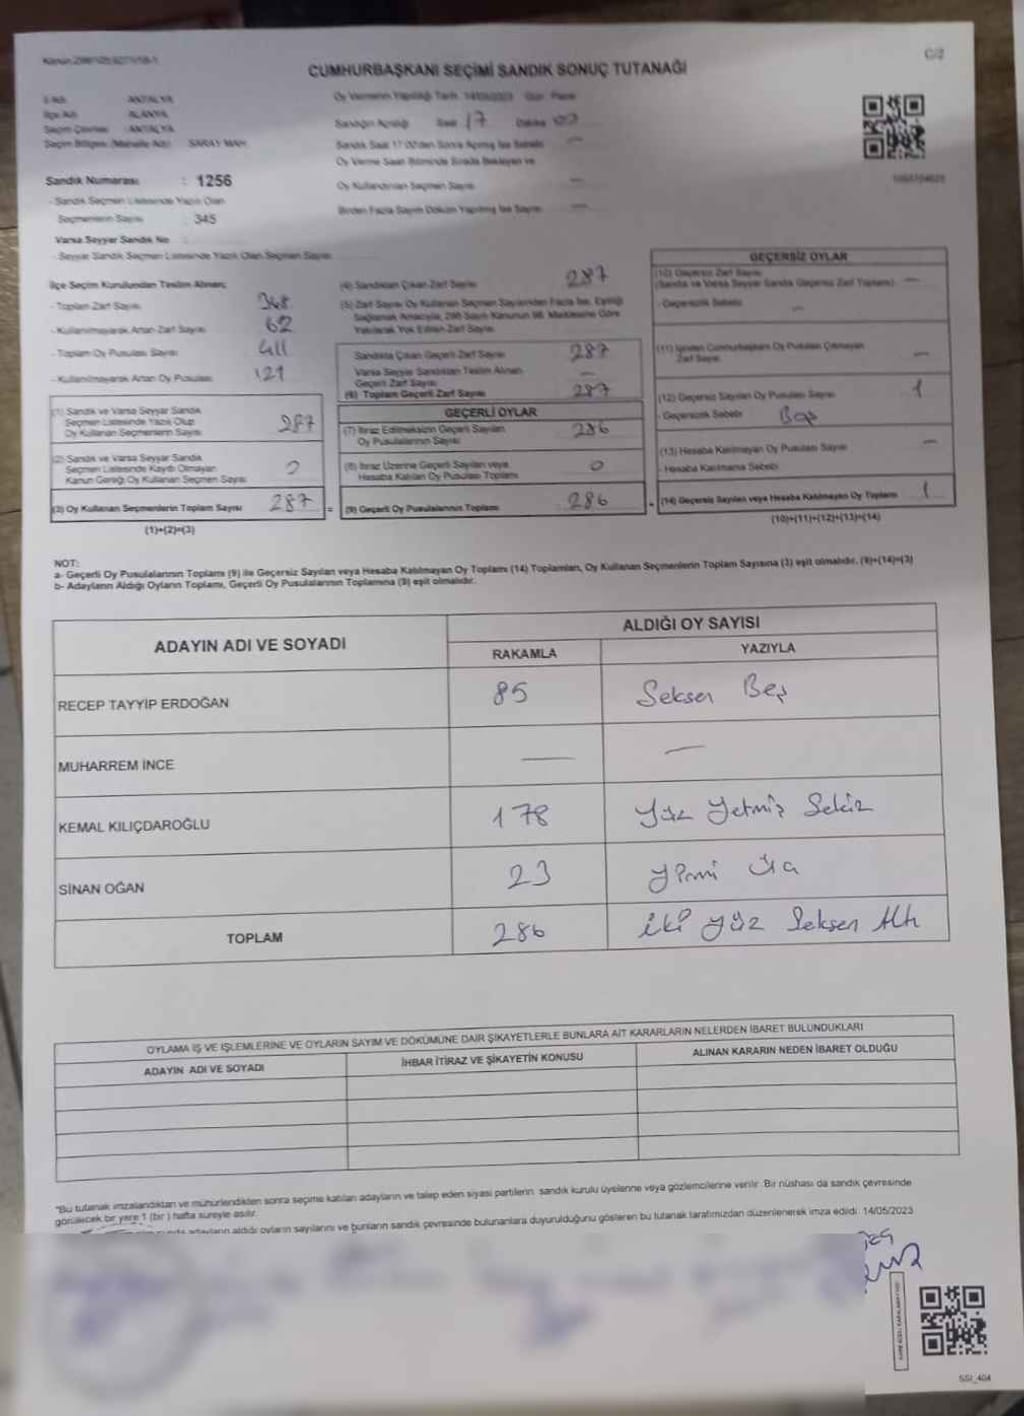 C/2
CUMHURBAŞKANI SEÇİMİ SANDIK SONUÇ TUTANAĞI
İl Adı ANTALYA
İlçe Adı ALANYA
Seçim Çevresi : ANTALYA
Seçim Bölgesi (Mahalle Adı) SARAY MAH.
Sandık Numarası : 1256
- Sandık Seçmen Listesinde Yazılı Olan
Seçmenlerin Sayısı : 345
Varsa Seyyar Sandık No
- Seyyar Sandık Seçmen Listesinde Yazılı Olan Seçmen Sayısı
Oy Vermenin Yapıldığı Tarih: 14/05/2023 Gün: Pazar
Sandığın Açıldığı Saat 17 Dakika 00
Sandık Saat 17.00'den Sonra Açılmış İse Sebebi —
Oy Verme Saati Bitiminde Sırada Bekleyen ve
Oy Kullandırılan Seçmen Sayısı —
Birden Fazla Sayım Döküm Yapılmış İse Sayısı —
İlçe Seçim Kurulundan Teslim Alınan;
- Toplam Zarf Sayısı 348
- Kullanılmayarak Artan Zarf Sayısı 62
- Toplam Oy Pusulası Sayısı 411
- Kullanılmayarak Artan Oy Pusulası 121
(1) Sandık ve Varsa Seyyar Sandık
Seçmen Listesinde Yazılı Olup
Oy Kullanan Seçmenlerin Sayısı 287
(2) Sandık ve Varsa Seyyar Sandık
Seçmen Listesinde Kaydı Olmayan
Kanun Gereği Oy Kullanan Seçmen Sayısı 0
(3) Oy Kullanan Seçmenlerin Toplam Sayısı 287 =
(1)+(2)=(3)
(4) Sandıktan Çıkan Zarf Sayısı 287
(5) Zarf Sayısı Oy Kullanan Seçmen Sayısından Fazla İse, Eşitliği
Sağlamak Amacıyla, 298 Sayılı Kanunun 98. Maddesine Göre
Yakılarak Yok Edilen Zarf Sayısı
Sandıkta Çıkan Geçerli Zarf Sayısı 287
Varsa Seyyar Sandıktan Teslim Alınan
Geçerli Zarf Sayısı —
(6) Toplam Geçerli Zarf Sayısı 287
GEÇERLİ OYLAR
(7) İtiraz Edilmeksizin Geçerli Sayılan
Oy Pusulalarının Sayısı 286
(8) İtiraz Üzerine Geçerli Sayılan veya
Hesaba Katılan Oy Pusulası Toplamı 0
(9) Geçerli Oy Pusulalarının Toplamı 286 +
GEÇERSİZ OYLAR
(10) Geçersiz Zarf Sayısı
(Sandık ve Varsa Seyyar Sandık Geçersiz Zarf Toplamı) —
- Geçersizlik Sebebi —
(11) İçinden Cumhurbaşkanı Oy Pusulası Çıkmayan
Zarf Sayısı —
(12) Geçersiz Sayılan Oy Pusulası Sayısı 1
- Geçersizlik Sebebi Boş
(13) Hesaba Katılmayan Oy Pusulası Sayısı —
- Hesaba Katılmama Sebebi
(14) Geçersiz Sayılan veya Hesaba Katılmayan Oy Toplamı 1
(10)+(11)+(12)+(13)=(14)
NOT:
a- Geçerli Oy Pusulalarının Toplamı (9) ile Geçersiz Sayılan veya Hesaba Katılmayan Oy Toplamı (14) Toplamları, Oy Kullanan Seçmenlerin Toplam Sayısına (3) eşit olmalıdır. (9)+(14)=(3)
b- Adayların Aldığı Oyların Toplamı, Geçerli Oy Pusulalarının Toplamına (9) eşit olmalıdır.
ADAYIN ADI VE SOYADI ALDIĞI OY SAYISI
RAKAMLA YAZIYLA
RECEP TAYYİP ERDOĞAN 85 Seksen Beş
MUHARREM İNCE — —
KEMAL KILIÇDAROĞLU 178 Yüz Yetmiş Sekiz
SİNAN OĞAN 23 Yirmi Üç
TOPLAM 286 iki yüz Seksen Altı
OYLAMA İŞ VE İŞLEMLERİNE VE OYLARIN SAYIM VE DÖKÜMÜNE DAİR ŞİKAYETLERLE BUNLARA AİT KARARLARIN NELERDEN İBARET BULUNDUKLARI
ADAYIN ADI VE SOYADI İHBAR İTİRAZ VE ŞİKAYETİN KONUSU ALINAN KARARIN NEDEN İBARET OLDUĞU
"Bu tutanak imzalandıktan ve mühürlendikten sonra seçime katılan adayların ve talep eden siyasi partilerin sandık kurulu üyelerine veya gözlemcilerine verilir. Bir nüshası da sandık çevresinde
görülecek bir yere 1 (bir) hafta süreyle asılır.
adayların aldığı oyların sayılarını ve bunların sandık çevresinde bulunanlara duyurulduğunu gösteren bu tutanak tarafımızdan düzenlenerek imza edildi. 14/05/2023
SSI_404